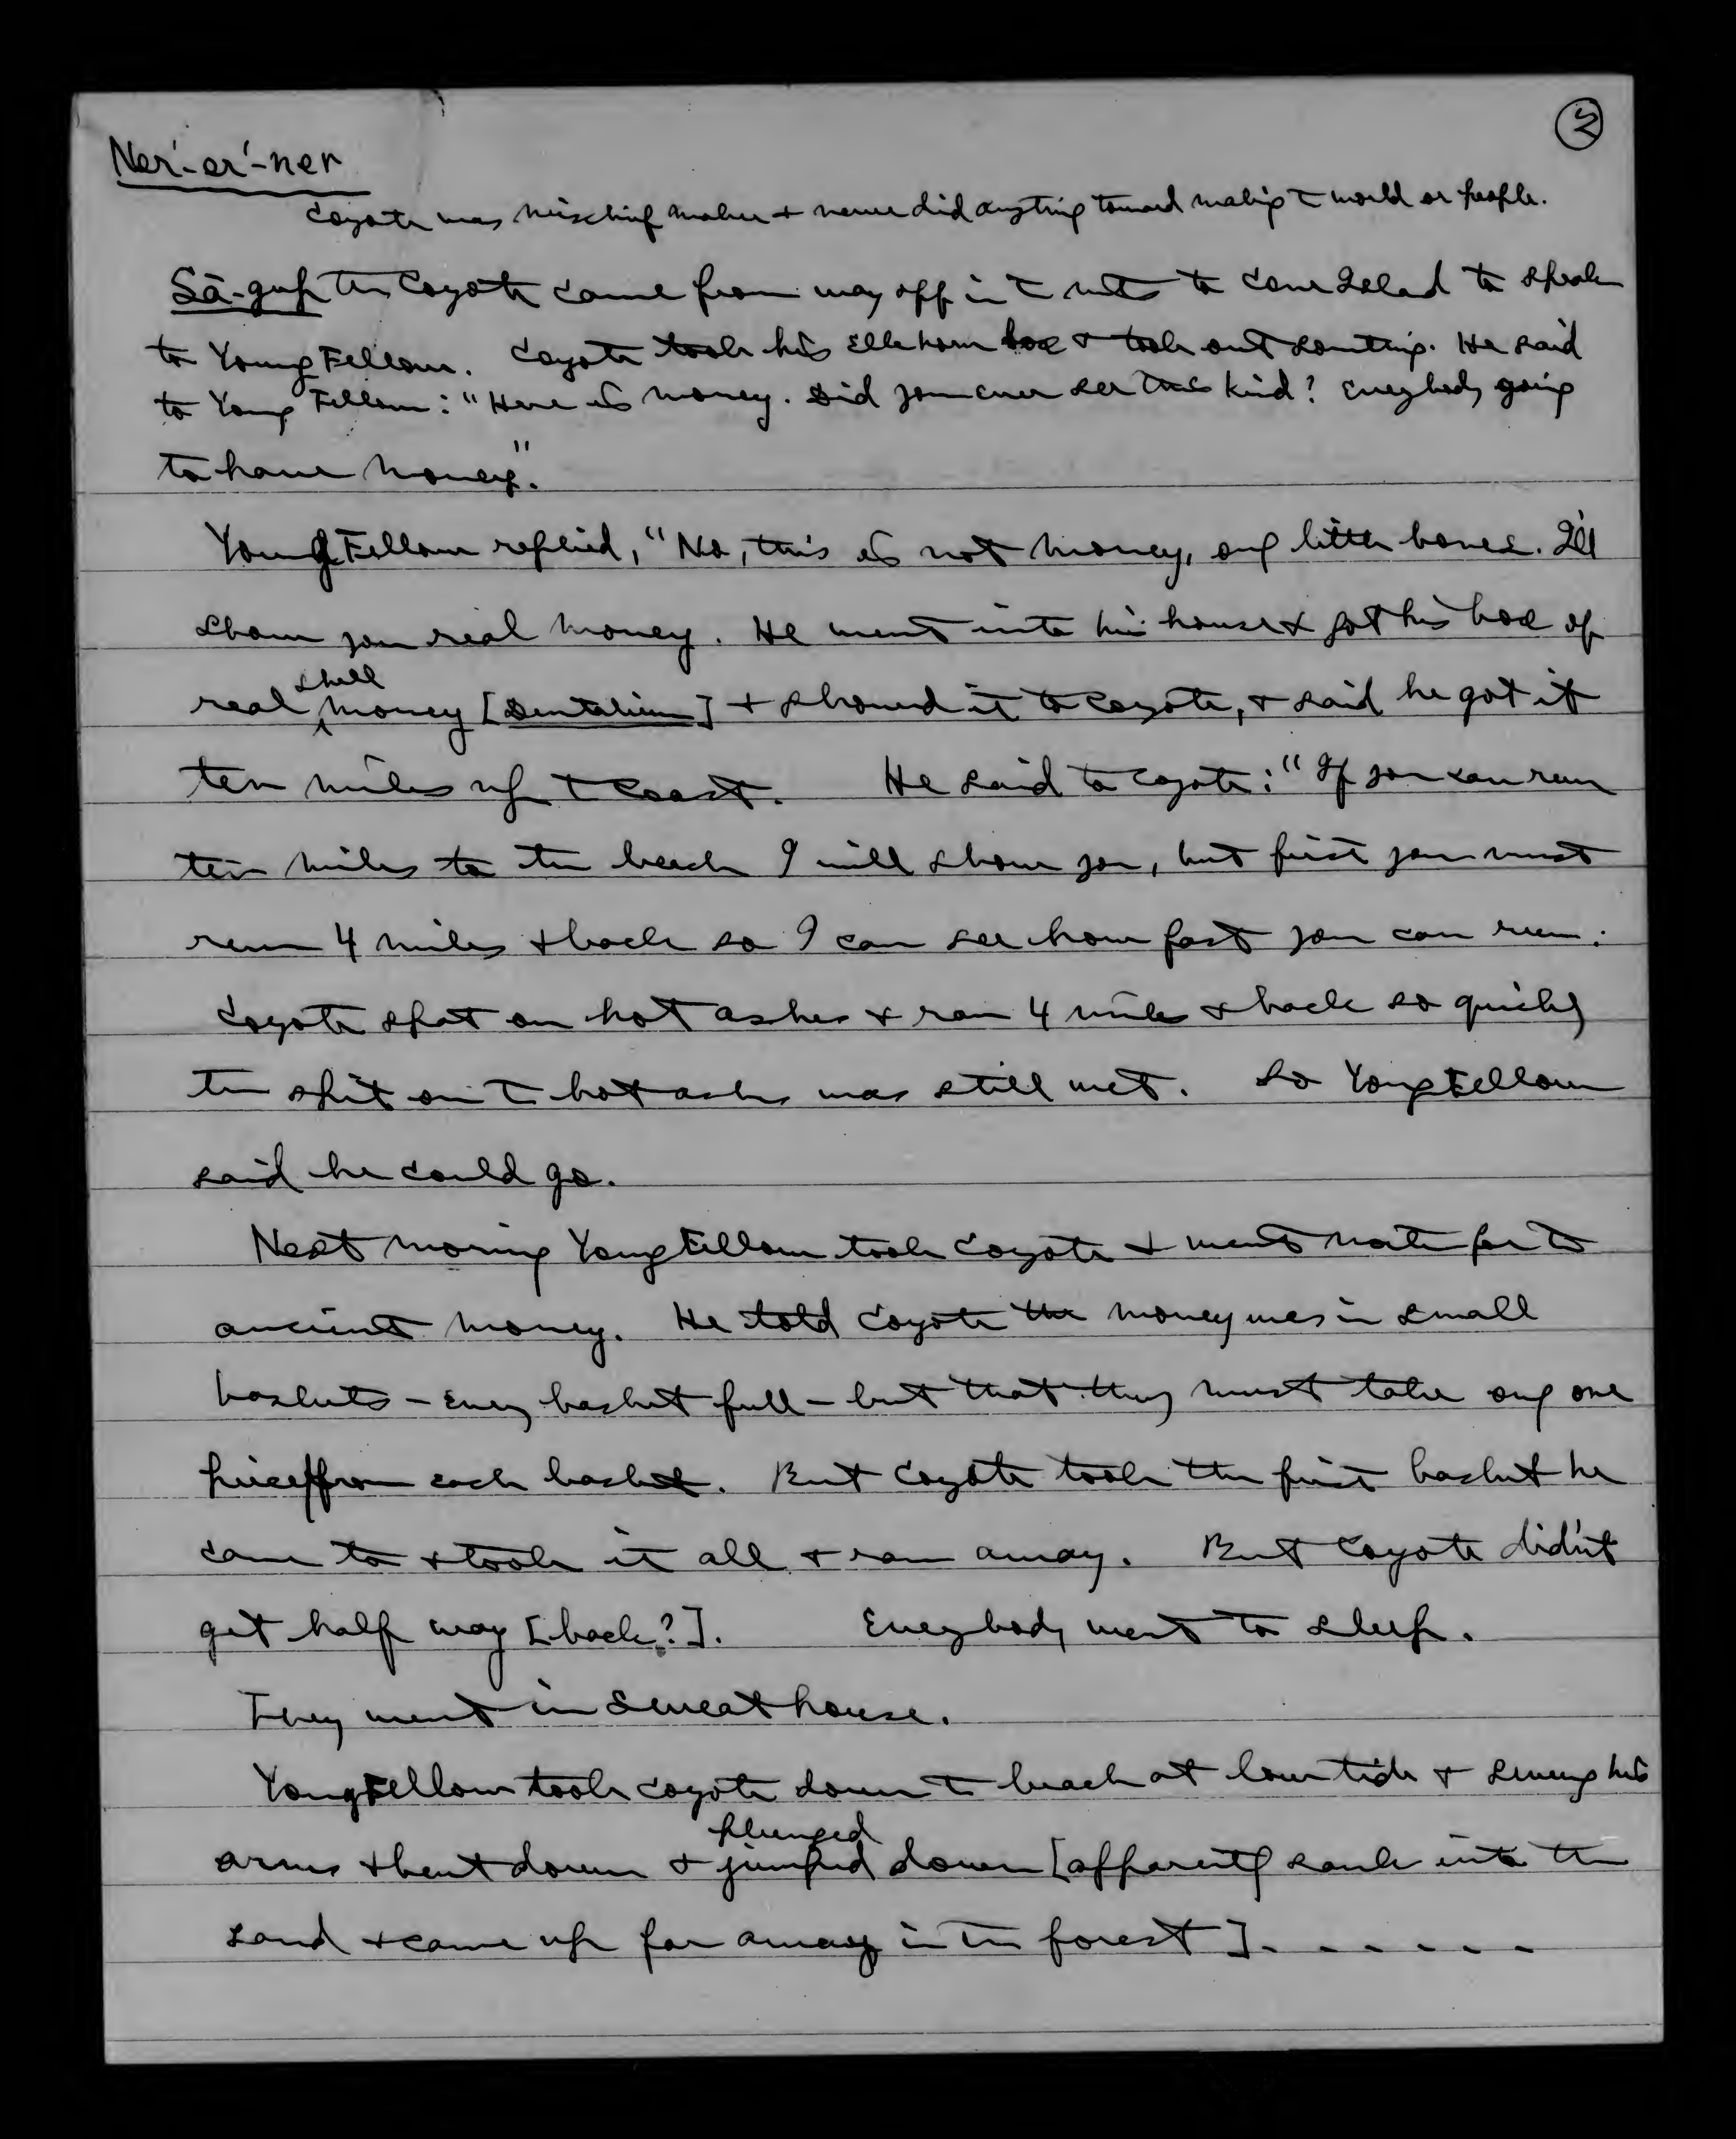 3
Ner'-er'-ner
Coyote was mischief maker + never did anything toward making T world or people.
Sā-gup the Coyote came from way off in T mts to to speak
to Young Fellow. Coyote took his Elkhorn box + took out something. He said
to Young Fellow: "Here is money. Did you ever see this kind? Everybody going
to have money."
Young Fellow replied, "No, this is not money, only little bones. I'll
show you real money. He went into his house + got his box of
real shell money [Dentalium] + showed it to Coyote, + said he got it
ten miles up T Coast. He said to Coyote: "If you can run
ten miles to the beach I will show you, but first you must
run 4 miles + back so I can see how fast you can run.
Coyote spat on hot ashes + ran 4 miles + back so quickly
the spit on T hot ashes was still wet. So Young Fellow
said he could go.
Next morning Young Fellow took Coyote + went north for T
ancient money. He told Coyote the money was in small
baskets – every basket full – but that they must take only one
piece from each basket. But Coyote took the first basket he
came to + took it all + ran away. But Coyote didn't
get half way [back?]. Everybody went to sleep.
They went in Sweathouse.
Young Fellow took Coyote down T beach at low tide + swung his
arms + bent down + jumped plunged down [apparently sank into the
sand + came up far away in the forest] . - - - - - -